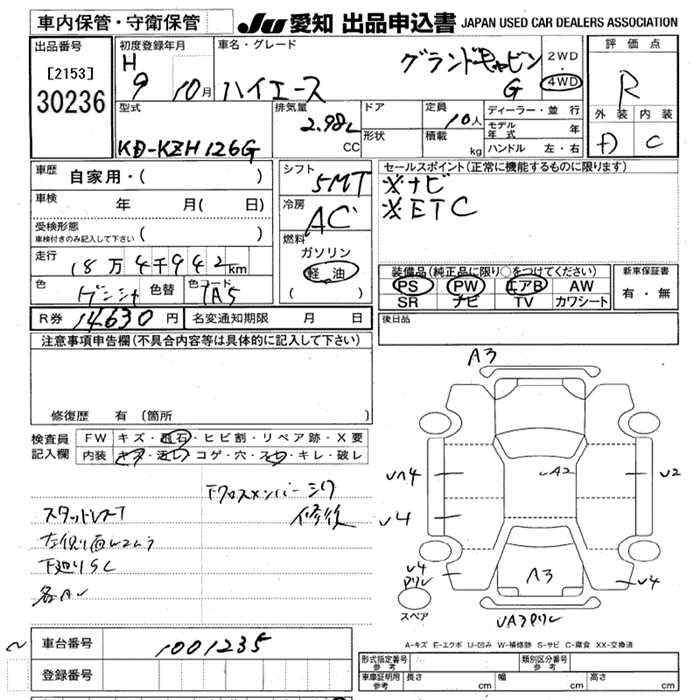 車内保管・守衛保管
JU 愛知 出品申込書 JAPAN USED CAR DEALERS ASSOCIATION
出品番号
[2153]
30236
初度登録年月
H 9 10月
車名・グレード
ハイエース グランドキャビン G
2WD
・
4WD
評価点
R
外装 内装
D C
型式
KD-KZH126G
排気量
2.98L
CC
ドア
形状
定員
10人
積載
kg
ディーラー・並行
モデル年式 年
ハンドル 左・右
車歴
自家用・( )
車検
年 月( 日)
受検形態
車検付きのみ記入して下さい ( )
走行
18万4千942km
色
色替
色コード
1A5
シフト
5MT
冷房
AC
燃料
ガソリン
軽油
( )
セールスポイント(正常に機能するものに限ります)
※ナビ
※ETC
装備品(純正品に限り○をつけてください)
PS PW エアB AW
SR ナビ TV カワシート
新車保証書
有・無
R券 14630円
名変通知期限 月 日
後日品
注意事項申告欄(不具合内容等は具体的に記入して下さい)
修復歴 有 〔箇所 〕
検査員
記入欄
FW キズ・飛石・ヒビ割・リペア跡・X要
内装 キズ・汚レ・コゲ・穴・スレ・キレ・破レ
下クロスメンバーシワ
修復
スタッドレスT
下廻りSC
A3
UA2
U4
U2
U4
A3
U4
U4
スペア
UA3
A-キズ E-エクボ U-凹み W-補修跡 S-サビ C-腐食 XX-交換済
車台番号
1001235
登録番号
形式指定番号
参考
類別区分番号
参考
車庫証明用
参考
長さ cm
幅 cm
高さ cm